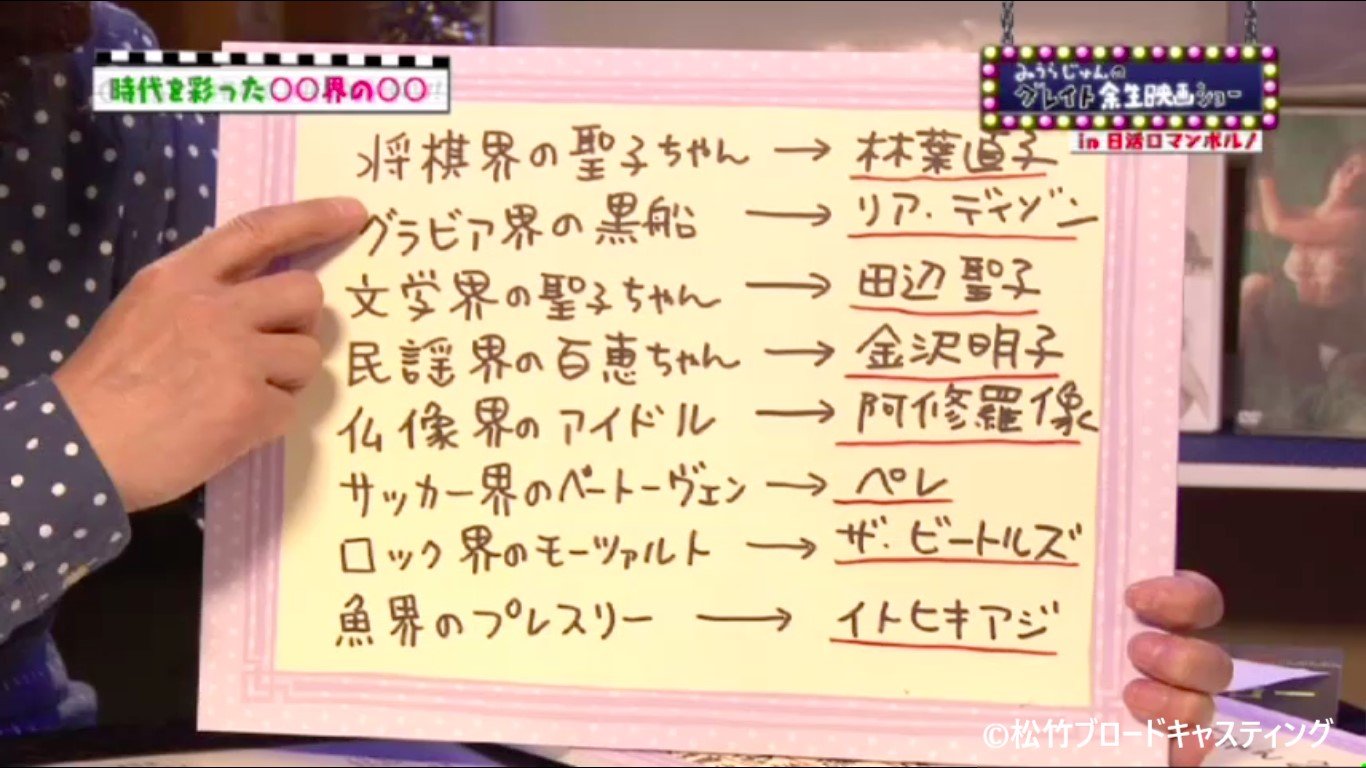 時代を彩った〇〇界の〇〇
みうらじゅんの
グレイト余生映画ショー
in 日活ロマンポルノ
将棋界の聖子ちゃん → 林葉直子
グラビア界の黒船 → リア・ディゾン
文学界の聖子ちゃん → 田辺聖子
民謡界の百恵ちゃん → 金沢明子
仏像界のアイドル → 阿修羅像
サッカー界のベートーヴェン → ペレ
ロック界のモーツァルト → ザ・ビートルズ
魚界のプレスリー → イトヒキアジ
©松竹ブロードキャスティング